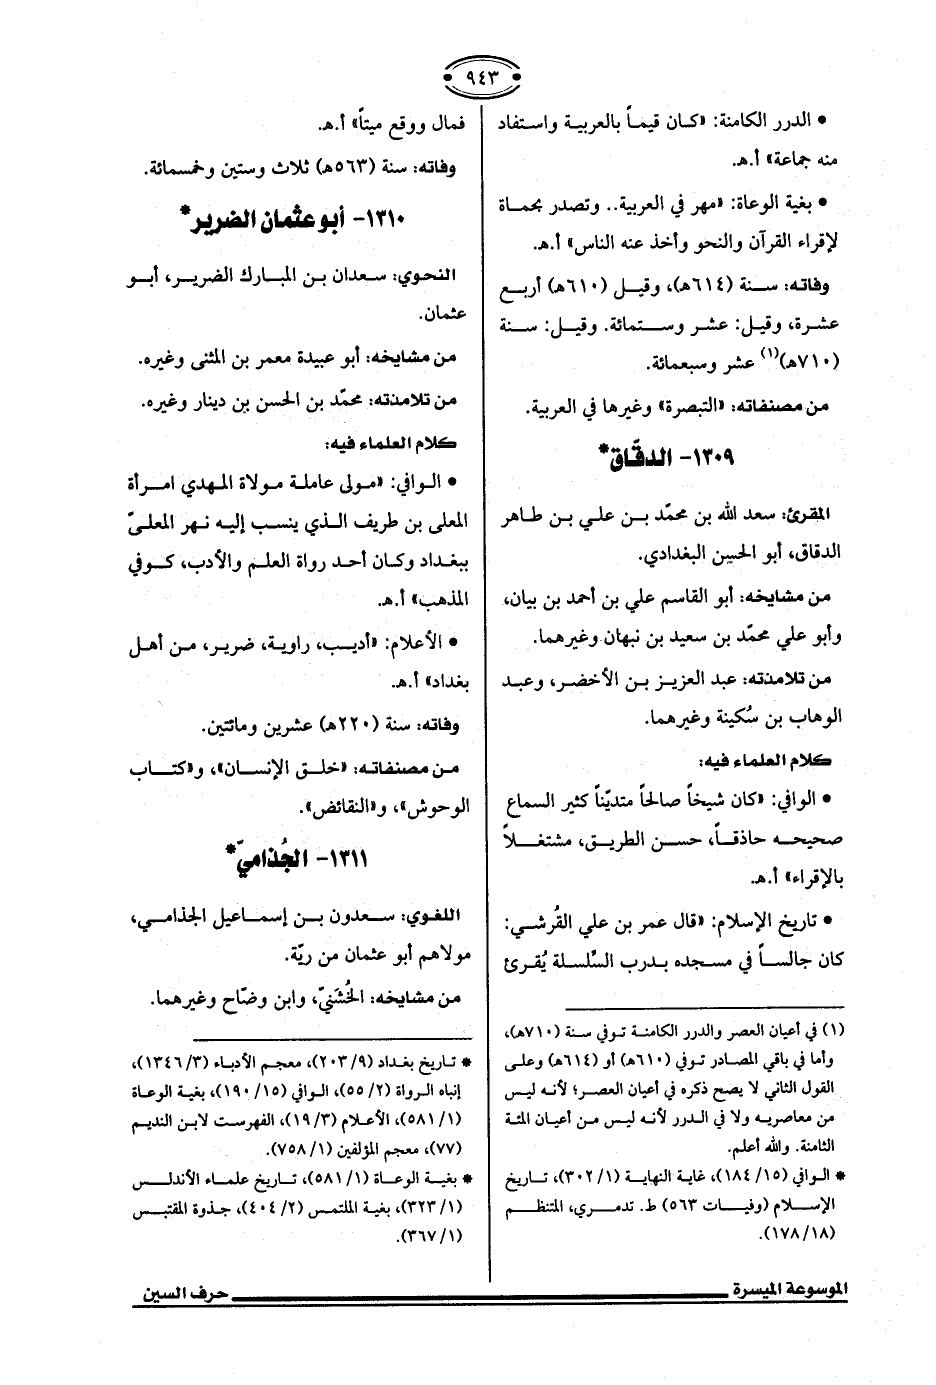 ٩٤٣
• الدرر الكامنة: «كان قيماً بالعربية واستفاد
منه جماعة» أ.هـ.
• بغية الوعاة: «مهر في العربية.. وتصدر بحماة
لإقراء القرآن والنحو وأخذ عنه الناس» أ.هـ.
وفاته: سنة (٦١٤هـ)، وقيل (٦١٠هـ) أربع
عشرة، وقيل: عشر وستمائة. وقيل: سنة
(٧١٠هـ)(١) عشر وسبعمائة.
من مصنفاته: «التبصرة» وغيرها في العربية.
١٣٠٩- الدقّاق*
المقرئ: سعد الله بن محمّد بن علي بن طاهر
الدقاق، أبو الحسين البغدادي.
من مشايخه: أبو القاسم علي بن أحمد بن بيان،
وأبو علي محمّد بن سعيد بن نبهان وغيرهما.
من تلامذته: عبد العزيز بن الأخضر، وعبد
الوهاب بن سُكينة وغيرهما.
كلام العلماء فيه:
• الوافي: «كان شيخاً صالحاً متديّناً كثير السماع
صحيحه حاذقاً، حسن الطريق، مشتغلاً
بالإقراء» أ.هـ.
• تاريخ الإسلام: «قال عمر بن علي القُرشي:
كان جالساً في مسجده بدرب السِّلسلة يُقرئ
(١) في أعيان العصر والدرر الكامنة توفي سنة (٧١٠هـ)،
وأما في باقي المصادر توفي (٦١٠هـ) أو (٦١٤هـ) وعلى
القول الثاني لا يصح ذكره في أعيان العصر؛ لأنه ليس
من معاصريه ولا في الدرر لأنه ليس من أعيان المئة
الثامنة. والله أعلم.
* الوافي (١٥/ ١٨٤)، غاية النهاية (١/ ٣٠٢)، تاريخ
الإسلام (وفيات ٥٦٣) ط. تدمري، المنتظم
(١٨/ ١٧٨).
فمال ووقع ميتاً» أ.هـ.
وفاته: سنة (٥٦٣هـ) ثلاث وستين وخمسمائة.
١٣١٠- أبو عثمان الضرير*
النحوي: سعدان بن المبارك الضرير، أبو
عثمان.
من مشايخه: أبو عبيدة معمر بن المثنى وغيره.
من تلامذته: محمّد بن الحسن بن دينار وغيره.
كلام العلماء فيه:
• الوافي: «مولى عاملة مولاة المهدي امرأة
المعلى بن طريف الذي ينسب إليه نهر المعلىّ
ببغداد وكان أحد رواة العلم والأدب، كوفي
المذهب» أ.هـ.
• الأعلام: «أديب، راوية، ضرير، من أهل
بغداد» أ.هـ.
وفاته: سنة (٢٢٠هـ) عشرين ومائتين.
من مصنفاته: «خلق الإنسان»، و«كتاب
الوحوش»، و«النقائض».
١٣١١- الجُذاميّ*
اللغوي: سعدون بن إسماعيل الجذامي،
مولاهم أبو عثمان من ريّة.
من مشايخه: الخُشَنيّ، وابن وضّاح وغيرهما.
* تاريخ بغداد (٩/ ٢٠٣)، معجم الأدباء (٣/ ١٣٤٦)،
إنباه الرواة (٢/ ٥٥)، الوافي (١٥/ ١٩٠)، بغية الوعاة
(١/ ٥٨١)، الأعلام (٣/ ١٩)، الفهرست لابن النديم
(٧٧)، معجم المؤلفين (١/ ٧٥٨).
* بغية الوعاة (١/ ٥٨١)، تاريخ علماء الأندلس
(١/ ٣٢٣)، بغية الملتمس (٢/ ٤٠٤)، جذوة المقتبس
(١/ ٣٦٧).
الموسوعة الميسرة
حرف السين